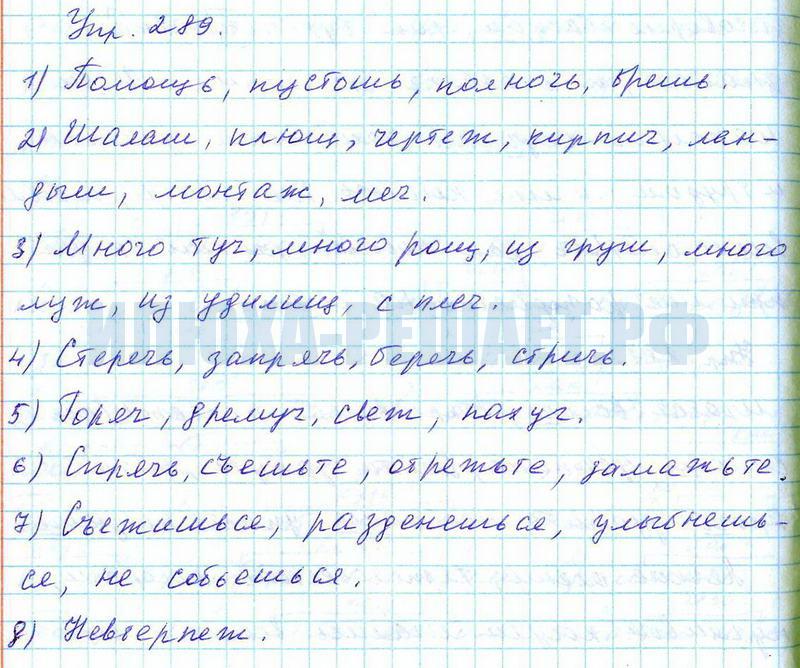 Упр. 289.
1) Помощь, пустошь, полночь, брешь.
2) Шалаш, плющ, чертеж, кирпич, лан-
дыш, монтаж, меч.
3) Много туч, много рощ, из груш, много
луж, из удилищ, с плеч.
ИЛЮХА-РЕШАЕТ.РФ
4) Стеречь, запрячь, беречь, стричь.
5) Горяч, дремуч, свеж, пахуч.
6) Спрячь, съешьте, отрежьте, замажьте.
7) Съежишься, разденешься, улыбнешь-
ся, не собьешься.
8) Невтерпеж.